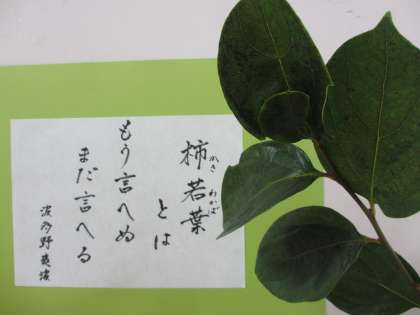 柿若葉
かき わかば
とは
もう言へぬ
まだ言へる
波多野爽波